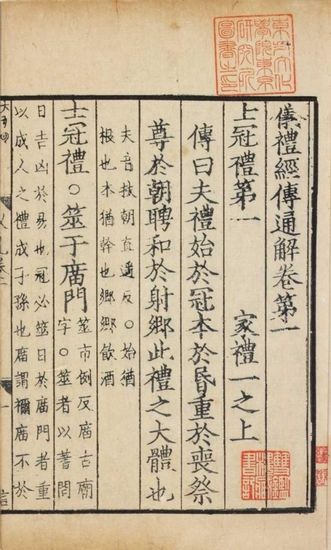 東方文化
學院東京
研究所
圖書之印
儀禮經傳通解卷第一
士冠禮第一 家禮一之上
傳曰夫禮始於冠本於昏重於喪祭
尊於朝聘和於射鄉此禮之大體也
夫音扶朝直遥反○始猶
根也本猶幹也鄉鄉飲酒
士冠禮○筮于庿門
筮市例反庿古廟
字○筮者以蓍問
日吉凶於易也冠必筮日於庿門者重
以成人之禮成子孫也庿謂禰庿不於